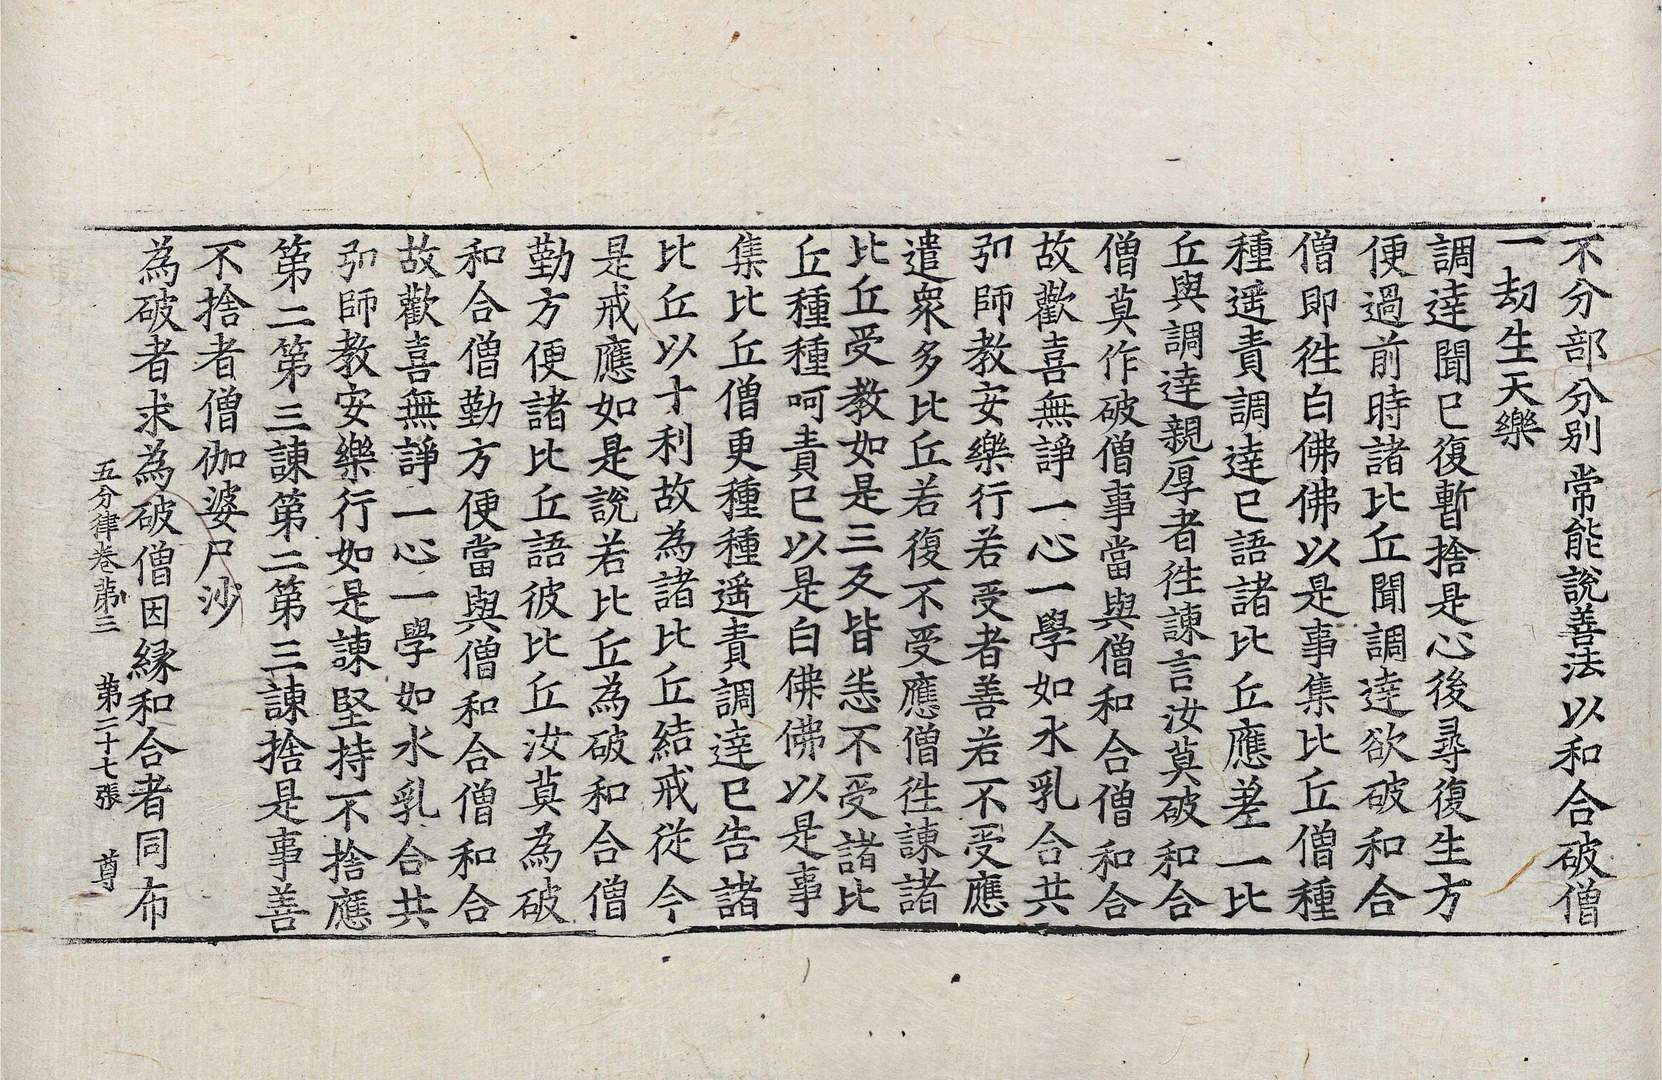 不分部分別常能說善法以和合破僧
一劫生天樂
調逹聞已復暫捨是心後尋復生方
便過前時諸比丘聞調逹欲破和合
僧即徃白佛佛以是事集比丘僧種
種遥責調逹已語諸比丘應差一比
丘與調逹親厚者徃諫言汝莫破和合
僧莫作破僧事當與僧和合僧和合
故歡喜無諍一心一學如水乳合共
弘師教安樂行若受者善若不受應
遣衆多比丘若復不受應僧徃諫諸
比丘受教如是三反皆悉不受諸比
丘種種呵責已以是白佛佛以是事
集比丘僧更種種遥責調逹已告諸
比丘以十利故為諸比丘結戒從今
是戒應如是說若比丘為破和合僧
勤方便諸比丘語彼比丘汝莫為破
和合僧勤方便當與僧和合僧和合
故歡喜無諍一心一學如水乳合共
弘師教安樂行如是諫堅持不捨應
第二第三諫第二第三諫捨是事善
不捨者僧伽婆尸沙
為破者求為破僧因縁和合者同布
五分律卷苐三 第二十七張 尊